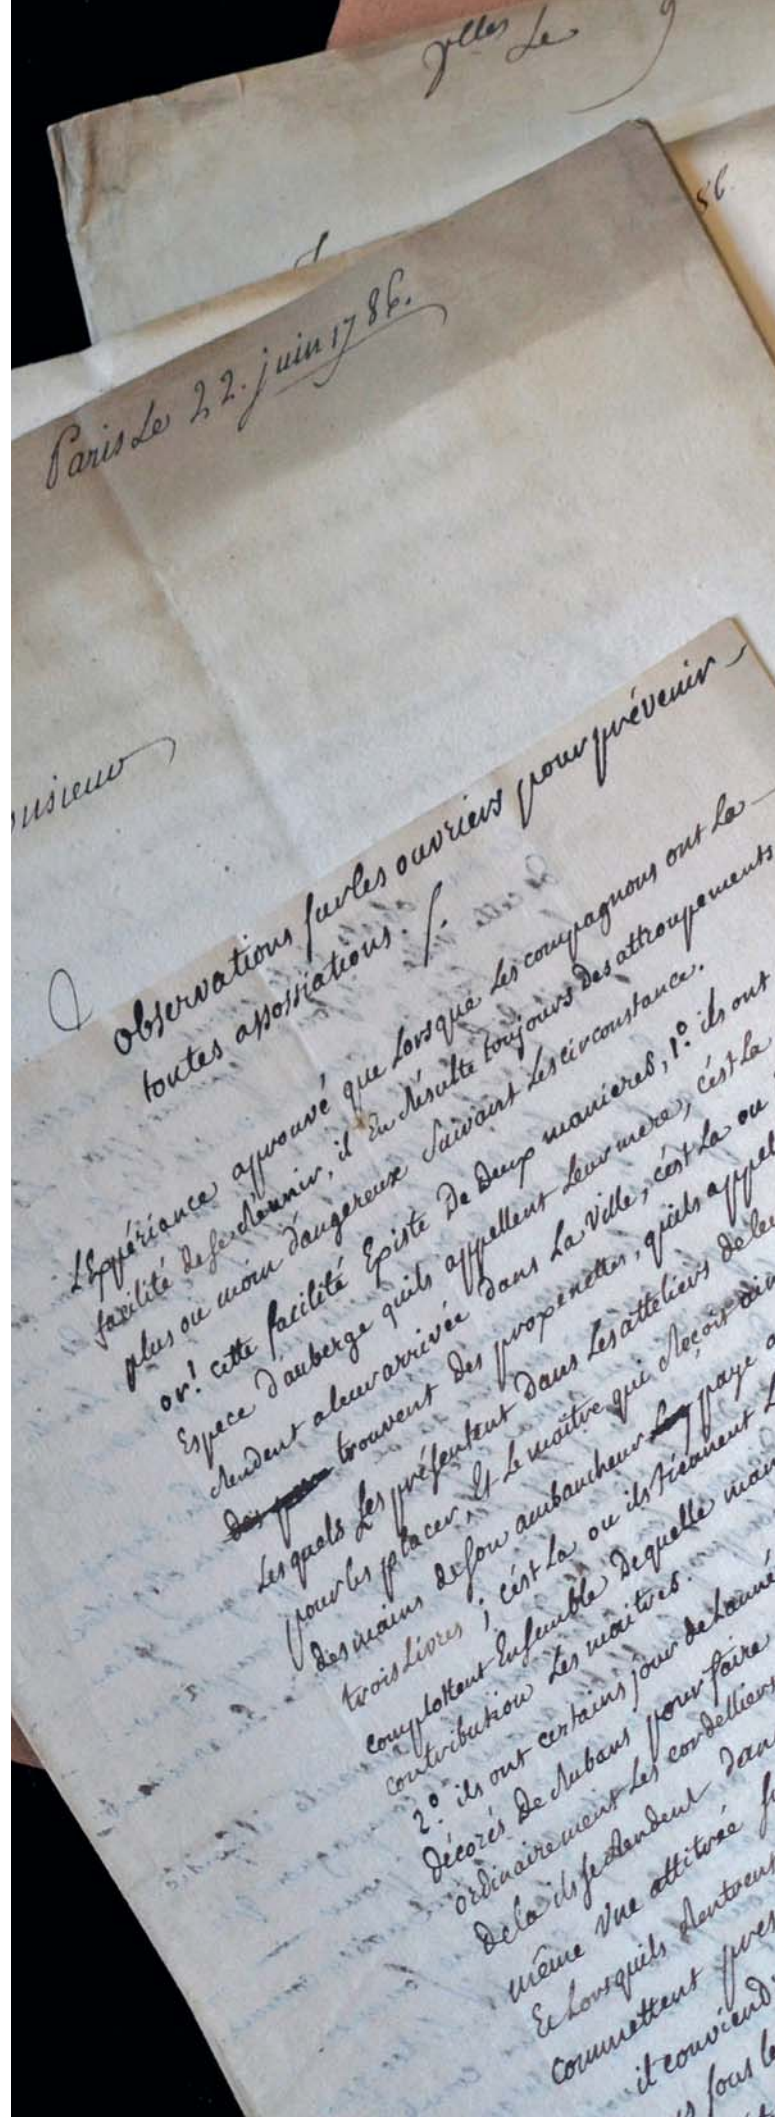 Le 9
86.
Paris Le 22. juin 1786.
onsieur
observations sur les ouvriers pour prévenir
toutes assossiations ./.
L'Expériance approuvé que Lorsque Les compagnons ont La
facilité de se Réunir, il En Résulte toujours Des attroupements
plus ou moin Dangereux Suivant Les circonstance.
or! cette facilité Existe De Deux manieres, 1.o ils ont
Espece D'auberge quils appellent Leur mere, c'est La
Rendent a leur arrivée Dans La Ville, c'est La ou
trouvent Des proxenettes, quils appel
Lesquels Les présentent Dans Les atteliers de leu
pour les placer, Et Le maitre qui Reçoit
des mains de son ambaucheur paye
trois Livres; c'est La ou ils tiennent
complottent Ensemble De quelle mani
contribution Les maitres.
2.o ils ont certains jour de L'anné
Décorés De Rubans pour faire
ordinairement Les cordelliers
De la ils se Rendent Dan
même Une attitrée
Et Lorsquils Rentrent
commettent pres
il conviend
sous le